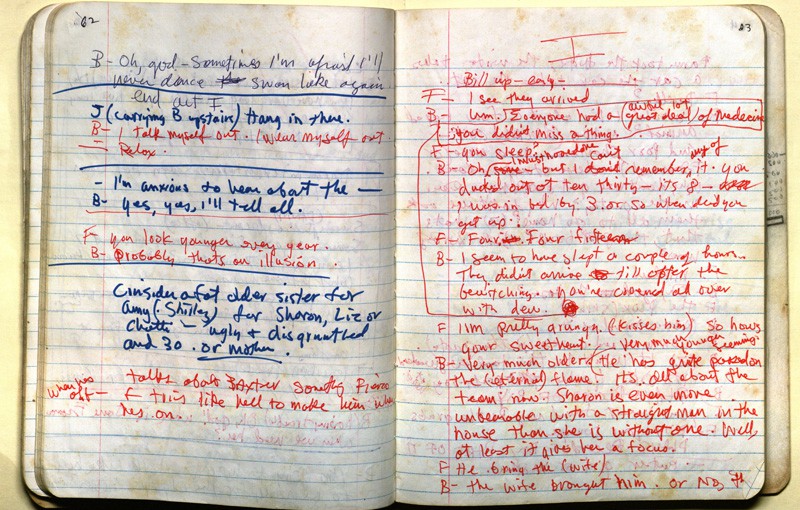 62
B- Oh, god - Sometimes I'm afraid I'll
never dance Swan Lake again
end act I
J (carrying B upstairs) Hang in there.
B- I talk myself out. (Wear myself out
Relax.
- I'm anxious to hear about the —
B- yes, yes, I'll tell all.
F- you look younger every year.
B- Probably that's an illusion.
Consider a fat older sister for
Amy (Shirley) for Sharon, Liz or
- ugly & disgruntled
and 30. or mother.
talks about
when he's out - F tries like hell to make him when
he's on.
63
I
Bill up - early -
F- I see they arrived
B- Um. Everyone had a (great deal) awful lot of medicine
you didn't miss a thing.
F- you sleep?
B- Oh, I must have done but can't remember any of it. You
ducked out at ten thirty - its 8 -
I was in bed by 3 or so when did you
get up?
F- Four. Four fifteen
B- I seem to have slept a couple of hours.
They didn't arrive till after the
bewitching. You're covered all over
with dew.
F I'm pretty grungy. (Kisses him) So how's
your sweetheart. very much younger seeming
B- Very much older. (He has quite passed on
the (eternal) flame. It's all about the
team now. Sharon is even more
unbearable with a straight man in the
house than she is without one. Well,
at least it gives her a focus.
F He bring the (wife)
B- the wife brought him. or No, th